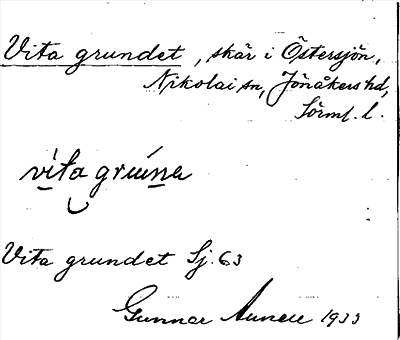 Vita grundet, skär i Östersjön,
Nikolai sn, Jönåkers hd,
Sörml. l.
vita gruna
Vita grundet Sj. 63
Gunnar 1933